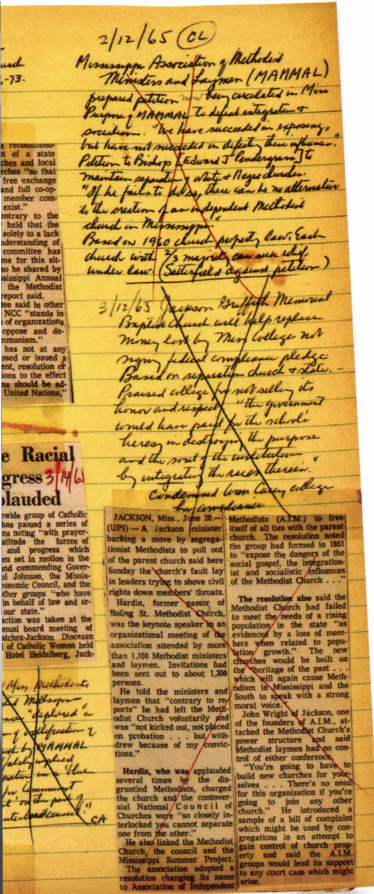 2/12/65 (CL)
Mississippi Association of Methodist
Ministers and Laymen (MAMMAL)
prepared petition now being circulated in Miss
Purpose of MAMMAL to defeat integration &
socialism. "We have succeeded in exposing,
but have not succeeded in defeating their influence."
Petition to Bishop Edward J Pendergrass] to
maintain separation white & Negro churches.
"If he fails to do so, there can be no alternative
to the creation of an independent Methodist
church in Mississippi."
Based on 1960 church property law. Each
church with 2/3 majority can seek relief
under law. (Satterfield against petition)
3/12/65 Jackson Griffith Memorial
Baptist Church will help replace
money lost by Miss College not
signing federal compliance pledge
Based on separation church & state. -
Praised college for not selling its
honor and respect, "the government
would have paid for the school's
heresy in destroying the purpose
and the soul of the institution
by integrating the races therein."
Condemned Wm Carey college
for compliance
urch
6-73.
recommend-
t of a state
ches and local
rches "so that
free exchange
and full co-op-
member com-
exist."
ontrary to the
held that the
solely to a lack
nderstanding of
committee has
me for this sit-
so be shared by
sissippi Annual
the Methodist
report said.
ee said in other
NCC "stands in
of organizations
oppose and de-
mmunism."
has not at any
ssed or issued a
ent, resolution or
ions to the effect
na should be ad-
United Nations,"
e Racial
gress 3/14/61
plauded
ewide group of Catholic
has passed a series of
ns noting "with prayer-
atitude the forces of
and progress which
en set in motion in the
nd commending Gover-
l Johnson, the Missis-
onomic Council, and the
ther groups "who have
in behalf of law and or-
our state."
ction was taken at the
nual board meeting of
atchez-Jackson Diocesan
l of Catholic Women held
Hotel Heidelberg, Jack-
Miss. Methodists
"deplored" a
by MAMMAL
CA
JACKSON, Miss., June 20.—
(UPI) — A Jackson minister
backing a move by segrega-
tionist Methodists to pull out
of the parent church said here
Sunday the church's fault lay
in leaders trying to shove civil
rights down members' throats.
Hardin, former pastor of
Boling St. Methodist Church,
was the keynote speaker to an
organizational meeting of the
association attended by more
than 1,100 Methodist ministers
and laymen. Invitations had
been sent out to about 1,300
persons.
He told the ministers and
laymen that "contrary to re-
ports" he had left the Meth-
odist Church voluntarily and
was "not kicked out, not placed
on probation . . . but with-
drew because of my convic-
tions."
Hardin, who was applauded
several times by the dis-
gruntled Methodists, charged
the church and the controver-
sial National Council of
Churches were "so closely in-
terlocked you cannot separate
one from the other."
He also linked the Methodist
Church, the council and the
Mississippi Summer Project.
The association adopted a
resolution changing its name
to Association of Independent
Methodists (A.I.M.) to free
itself of all ties with the parent
church. The resolution noted
the group had formed in 1951
to "expose the dangers of the
social gospel, the integration-
ist and socialistic influences
of the Methodist Church . . ."
The resolution also said the
Methodist Church had failed
to meet the needs of a rising
population in the state "as
evidenced by a loss of mem-
bers when related to popu-
lation growth." The new
churches would be built on
the "heritage of the past . . .
which will again cause Meth-
odism in Mississippi and the
South to speak with a strong
moral voice."
John Wright of Jackson, one
of the founders of A.I.M., at-
tacked the Methodist Church's
power structure and said
Methodist laymen had no con-
trol of either conference.
"You're going to have to
build new churches for your-
selves . . . There's no need
for this organization if you're
going to join any other
church." He introduced a
sample of a bill of complaint
which might be used by con-
gregations in an attempt to
gain control of church prop-
erty and said the A.I.M.
groups would lend its support
to any court case which might
arise.